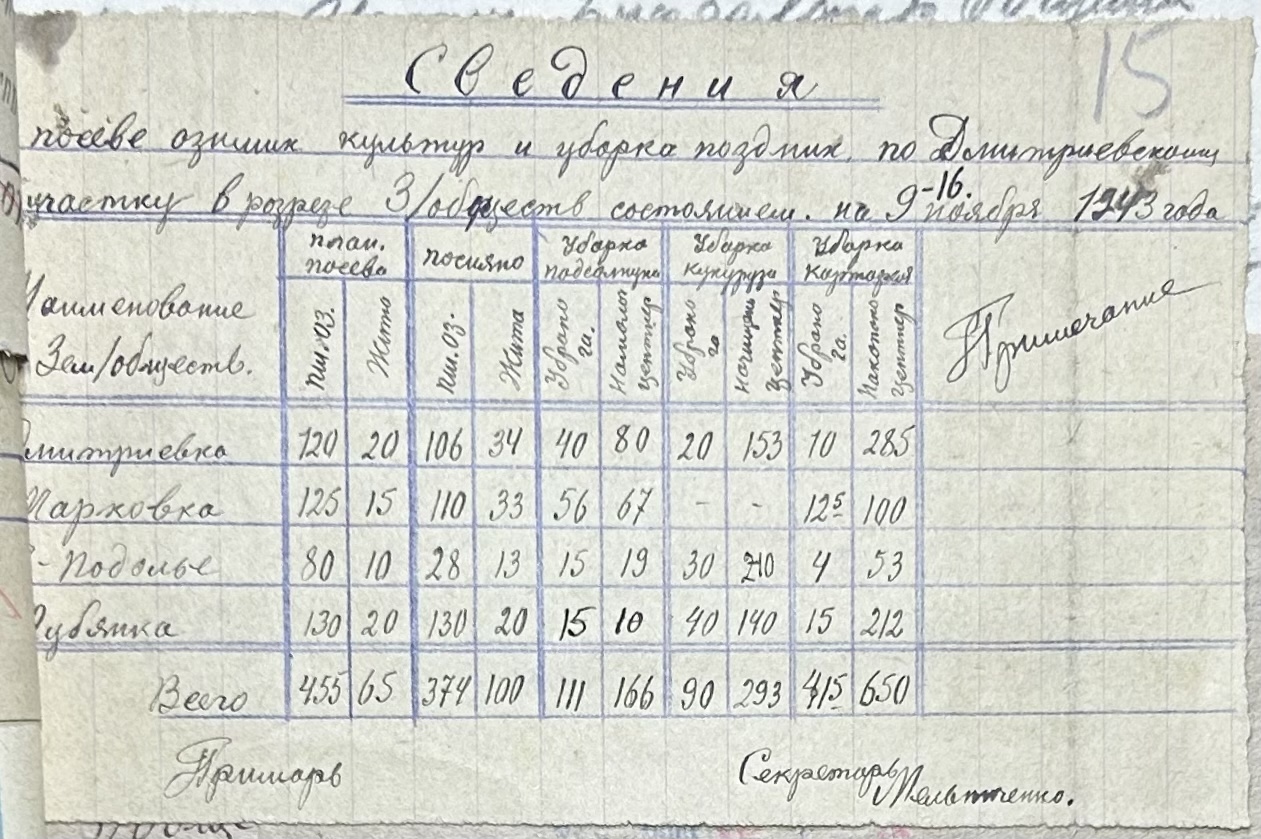 15
Сведения
посеве озимик культур и уборка поздних по Дмитриевскому
участку в розрезе З/обществ состоянием. на 9-16. ноября 1943 года
Наименование Зем/обществ. план. посева посияно Уборка подсолнуха Уборка кукурузы Уборка картофеля Примечание
Пш.оз. Жито Пш.оз. Жита Убрано га. Намолот центнер Убрано га начищен центнер Убрано га. Накопано центнер
Дмитриевка 120 20 106 34 40 80 20 153 10 285
Марковка 125 15 110 33 56 67 - - 12⁵ 100
-Подолье 80 10 28 13 15 19 30 210 4 53
убянка 130 20 130 20 15 10 40 140 15 212
Всего 455 65 374 100 111 166 90 293 415 650
Примарь Секретарь Мельниченко.